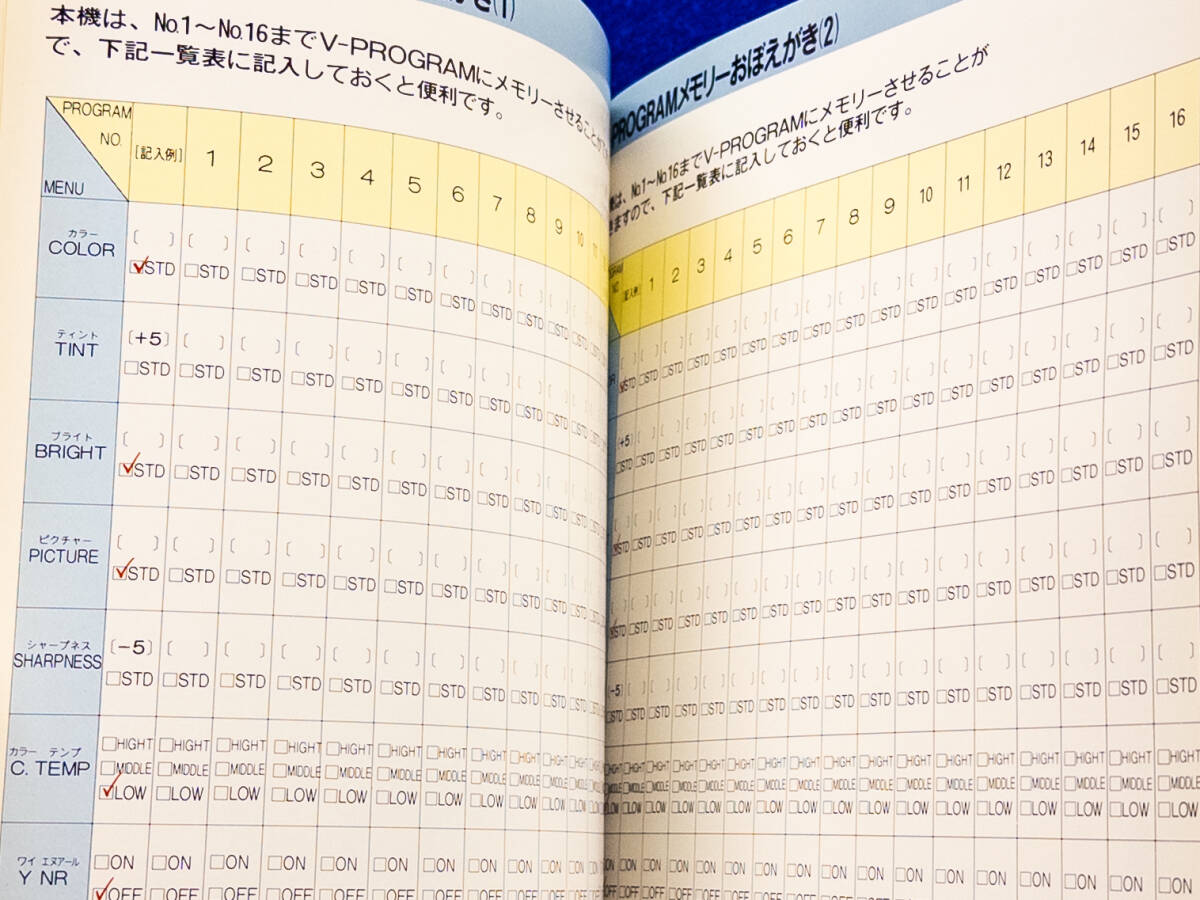 本機は、No.1～No.16までV-PROGRAMにメモリーさせることが
で、下記一覧表に記入しておくと便利です。
PROGRAM
NO.
MENU
[記入例] 1 2 3 4 5 6 7 8 9 10 11
カラー
COLOR
[ ] [ ] [ ] [ ] [ ] [ ] [ ] [ ] [ ] [ ]
☑STD □STD □STD □STD □STD □STD □STD □STD □STD □STD □STD □STD
ティント
TINT
[+5] [ ] [ ] [ ] [ ] [ ] [ ] [ ] [ ] [ ]
□STD □STD □STD □STD □STD □STD □STD □STD □STD □STD □STD □STD
ブライト
BRIGHT
[ ] [ ] [ ] [ ] [ ] [ ] [ ] [ ] [ ] [ ]
☑STD □STD □STD □STD □STD □STD □STD □STD □STD □STD □STD □STD
ピクチャー
PICTURE
[ ] [ ] [ ] [ ] [ ] [ ] [ ] [ ] [ ] [ ]
☑STD □STD □STD □STD □STD □STD □STD □STD □STD □STD □STD □STD
シャープネス
SHARPNESS
[-5] [ ] [ ] [ ] [ ] [ ] [ ] [ ] [ ] [ ]
□STD □STD □STD □STD □STD □STD □STD □STD □STD □STD □STD □STD
カラー テンプ
C. TEMP
□HIGHT □HIGHT □HIGHT □HIGHT □HIGHT □HIGHT □HIGHT □HIGHT □HIGHT □HIGHT □HIGHT
□MIDDLE □MIDDLE □MIDDLE □MIDDLE □MIDDLE □MIDDLE □MIDDLE □MIDDLE □MIDDLE □MIDDLE □MIDDLE
☑LOW □LOW □LOW □LOW □LOW □LOW □LOW □LOW □LOW □LOW □LOW
ワイ エヌアール
Y NR
□ON □ON □ON □ON □ON □ON □ON □ON □ON □ON □ON
☑OFF □OFF □OFF □OFF □OFF □OFF □OFF □OFF □OFF □OFF □OFF
PROGRAMメモリーおぼえがき(2)
機は、No.1～No.16までV-PROGRAMにメモリーさせることが
きますので、下記一覧表に記入しておくと便利です。
[記入例] 1 2 3 4 5 6 7 8 9 10 11 12 13 14 15 16
☑STD □STD □STD □STD □STD □STD □STD □STD □STD □STD □STD □STD □STD □STD □STD □STD □STD
[+5] [ ] [ ] [ ] [ ] [ ] [ ] [ ] [ ] [ ] [ ] [ ] [ ] [ ] [ ] [ ] [ ]
□STD □STD □STD □STD □STD □STD □STD □STD □STD □STD □STD □STD □STD □STD □STD □STD □STD
☑STD □STD □STD □STD □STD □STD □STD □STD □STD □STD □STD □STD □STD □STD □STD □STD □STD
☑STD □STD □STD □STD □STD □STD □STD □STD □STD □STD □STD □STD □STD □STD □STD □STD □STD
[-5] [ ] [ ] [ ] [ ] [ ] [ ] [ ] [ ] [ ] [ ] [ ] [ ] [ ] [ ] [ ] [ ]
□STD □STD □STD □STD □STD □STD □STD □STD □STD □STD □STD □STD □STD □STD □STD □STD □STD
□HIGHT □HIGHT □HIGHT □HIGHT □HIGHT □HIGHT □HIGHT □HIGHT □HIGHT □HIGHT □HIGHT □HIGHT □HIGHT □HIGHT □HIGHT □HIGHT □HIGHT
□MIDDLE □MIDDLE □MIDDLE □MIDDLE □MIDDLE □MIDDLE □MIDDLE □MIDDLE □MIDDLE □MIDDLE □MIDDLE □MIDDLE □MIDDLE □MIDDLE □MIDDLE □MIDDLE □MIDDLE
□LOW □LOW □LOW □LOW □LOW □LOW □LOW □LOW □LOW □LOW □LOW □LOW □LOW □LOW □LOW □LOW □LOW
□ON □ON □ON □ON □ON □ON □ON □ON □ON □ON □ON □ON □ON □ON □ON □ON □ON
□OFF □OFF □OFF □OFF □OFF □OFF □OFF □OFF □OFF